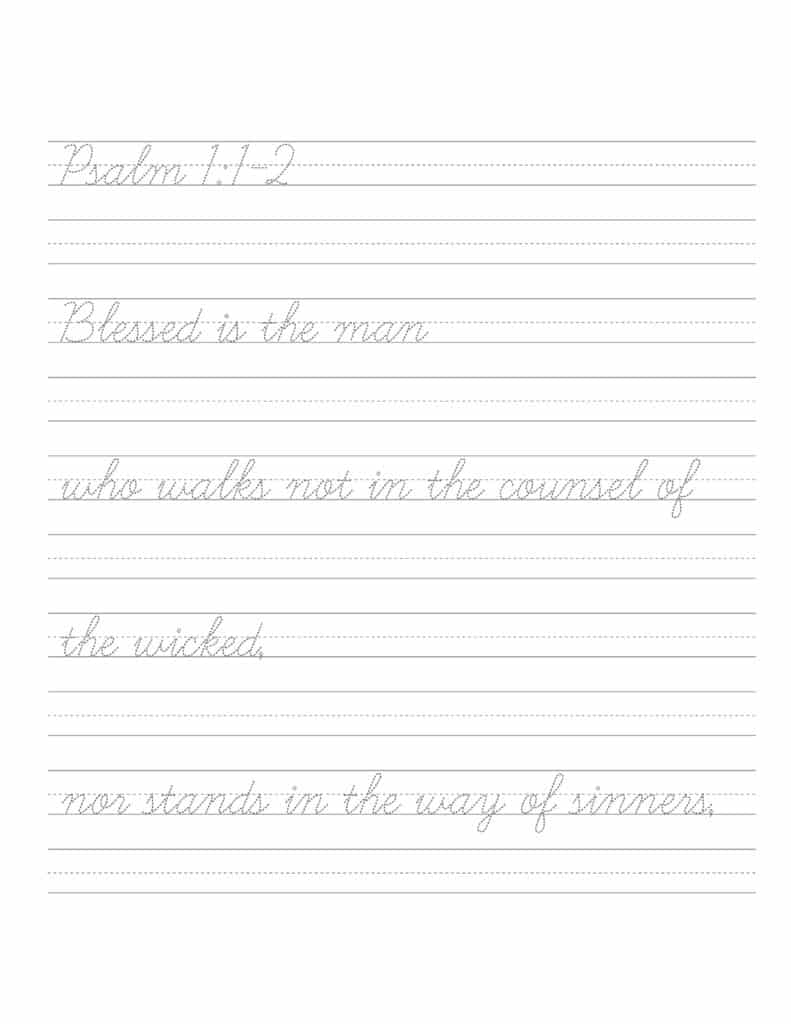 Psalm 1:1-2
Blessed is the man
who walks not in the counsel of
the wicked,
nor stands in the way of sinners,